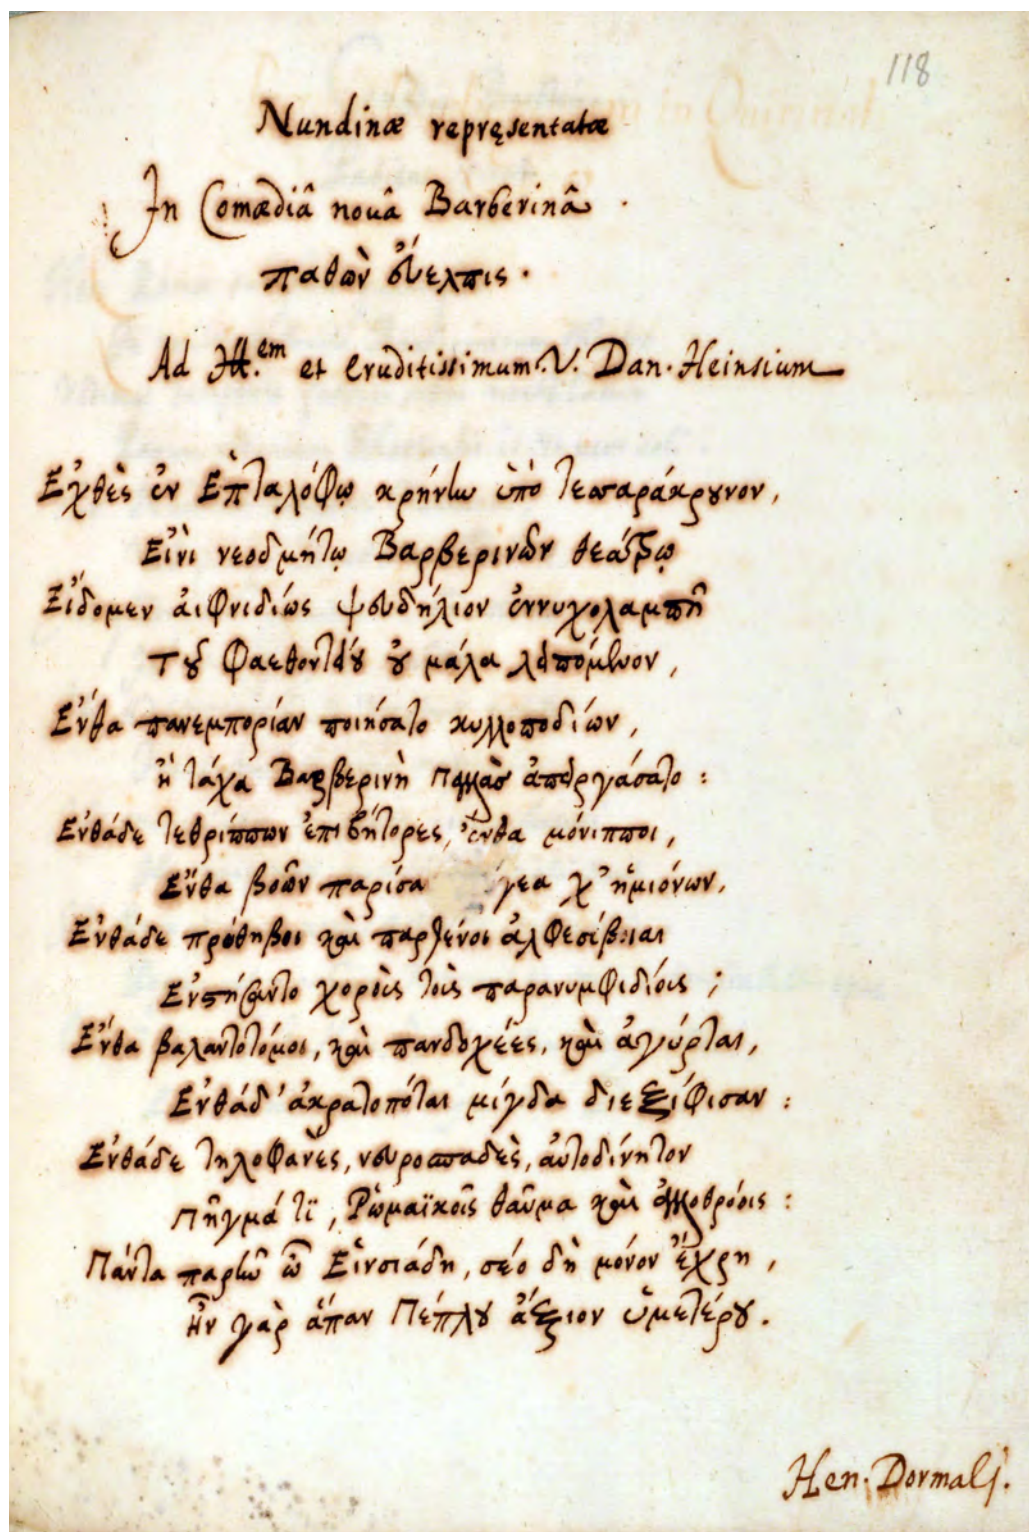 118
Nundinæ repręsentatæ
In Comœdiâ nouâ Barberinâ .
παθὼν εὔελπις .
Ad Ill.em et eruditissimum .V. Dan. Heinsium
Εχθὲς ἐν Επταλόφῳ κρήνην ὑπὸ τεσσαράκρουνον,
Εἰνι νεοδμήτῳ Βαρβερινῶν θεάτρῳ
Εἴδομεν αἰφνιδίως ψευδήλιον ἐννυχολαμπῆ
Τοῦ Φαεθοντείου οὐ μάλα λειπόμενον,
Ενθα πανεμπορίαν ποιήσατο κυλλοποδίων,
ἢ τάχα Βαρβερινὴ Παλλὰς ἀπειργάσατο :
Ενθάδε τεθρίππων ἐπιβήτορες, ἔνθα μόνιπποι,
Ενθα βοῶν παρίσα γεα χ' ἡμιόνων,
Ενθάδε πρόθηβοι καὶ παρθένοι ἀλφεσίβοιαι
Ενστήσαντο χοροῖς τοῖς παρανυμφιδίοις ;
Ενθα βαλαντοτόμοι, καὶ πανδοχέες, καὶ ἀγύρται,
Ενθάδ' ἀκρατοπόται μίγδα διεξίφισαν :
Ενθάδε τηλοφανὲς, νευροσπαδὲς, αὐτοδίνητον
Πῆγμά τϊ, Ρωμαϊκοῖς θαῦμα καὶ ἀλλοθρόοις :
Πάντα παρῆν ὦ Εἱνσιάδη, σέο δὴ μόνον ἔχρη,
Ην γὰρ ἅπαν Πέπλου ἄξιον ὑμετέρου.
Hen. Dormalj.